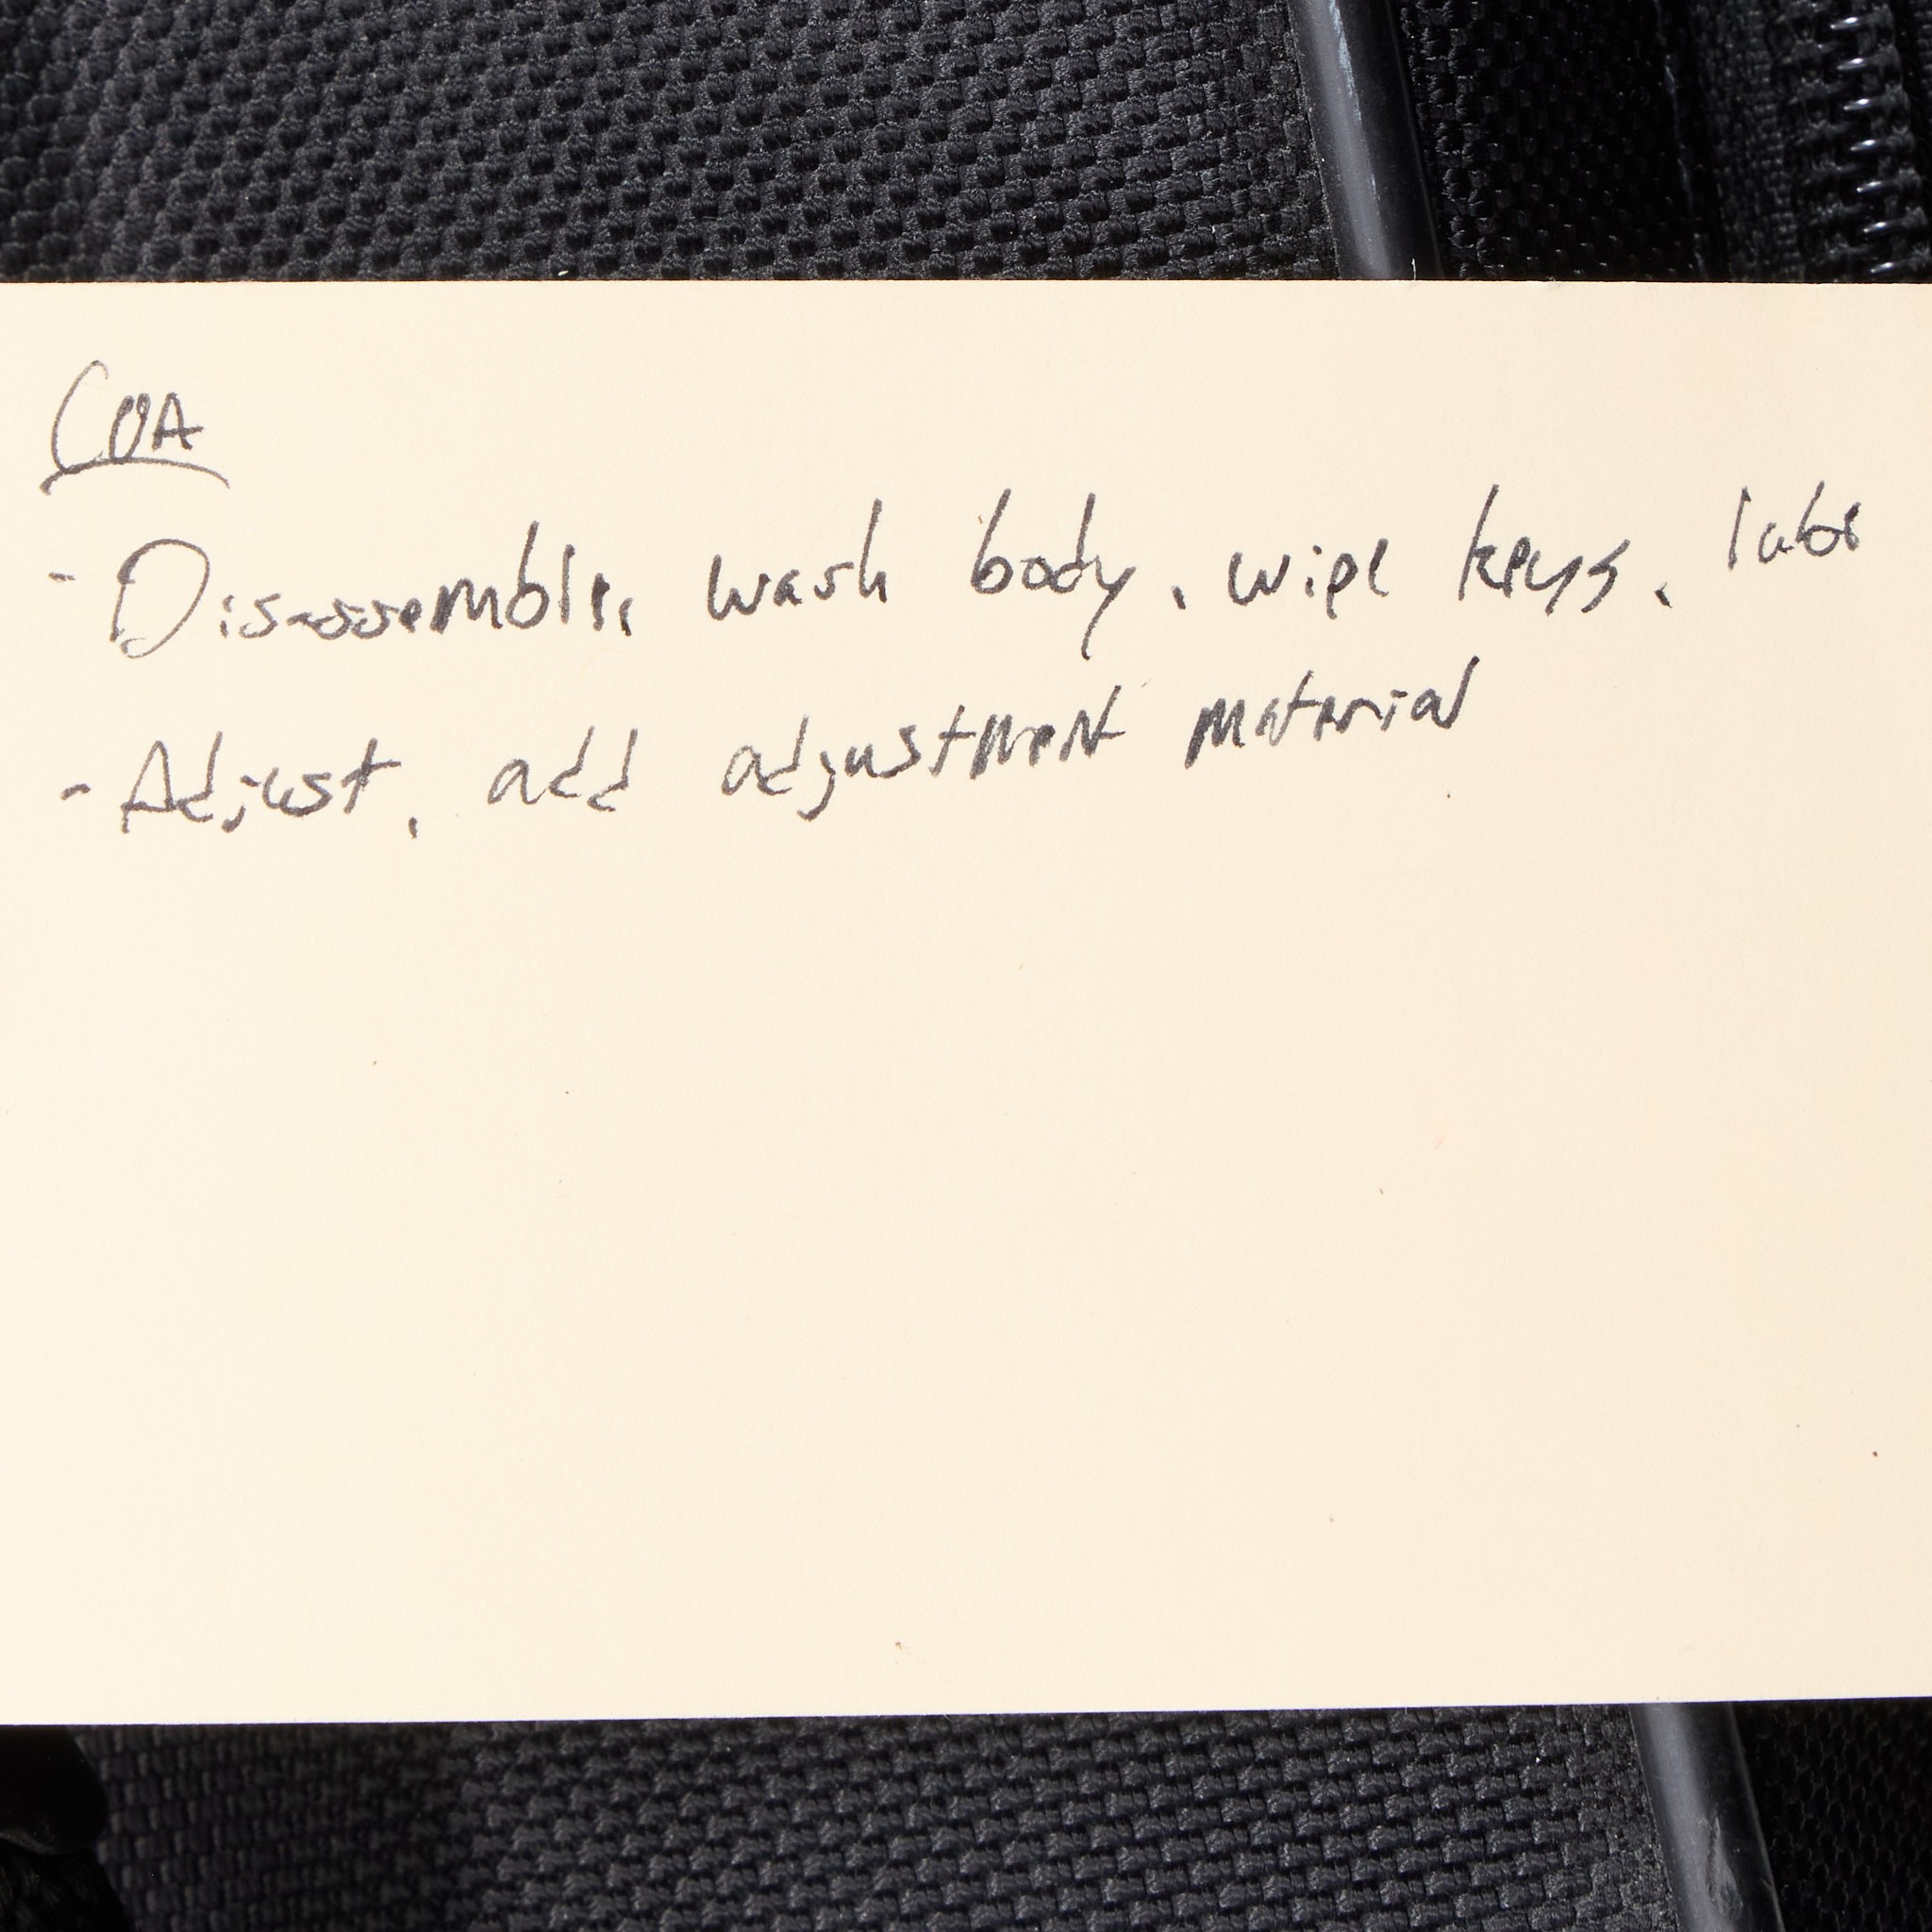 COA
- Disassemble, wash body, wipe keys, lube
- Adjust, add adjustment material